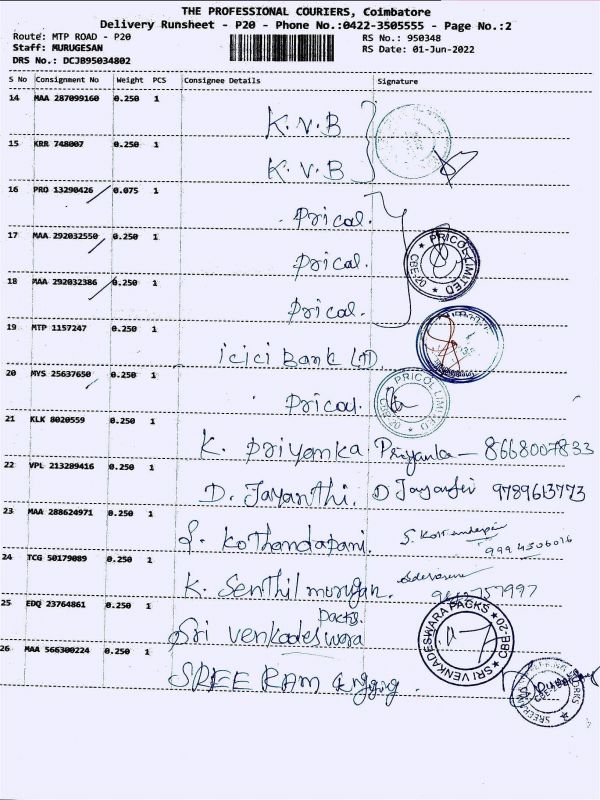 THE PROFESSIONAL COURIERS, Coimbatore
Delivery Runsheet - P20 - Phone No.:0422-3505555 - Page No.:2
Route: MTP ROAD - P20
RS No.: 950348
Staff: MURUGESAN
RS Date: 01-Jun-2022
DRS No.: DCJB95034802
S No Consignment No Weight PCS Consignee Details Signature
14 MAA 287099160 0.250 1 K.V.B
15 KRR 748007 0.250 1 K.V.B
16 PRO 13290426 0.075 1 Prical.
17 MAA 292032550 0.250 1 Prical.
PRICOL LIMITED CBE-20
18 MAA 292032386 0.250 1 Prical.
19 MTP 1157247 0.250 1 icici Bank Ltd
20 MYS 25637650 0.250 1 Prical.
PRICOL LIMITED
21 KLK 8020559 0.250 1 K. Priyanka Priyanka - 8668007833
22 VPL 213289416 0.250 1 D. Jayanthi. D Jayanthi 9789613773
23 MAA 288624971 0.250 1 S. Kothandapani.
24 TCG 50179089 0.250 1 K. Senthil murugan.
25 EDQ 23764861 0.250 1 Sri Venkadeswara Packs.
SRI VENKADESWARA PACKS CBE-20
26 MAA 566300224 0.250 1 SREE RAM Engging.